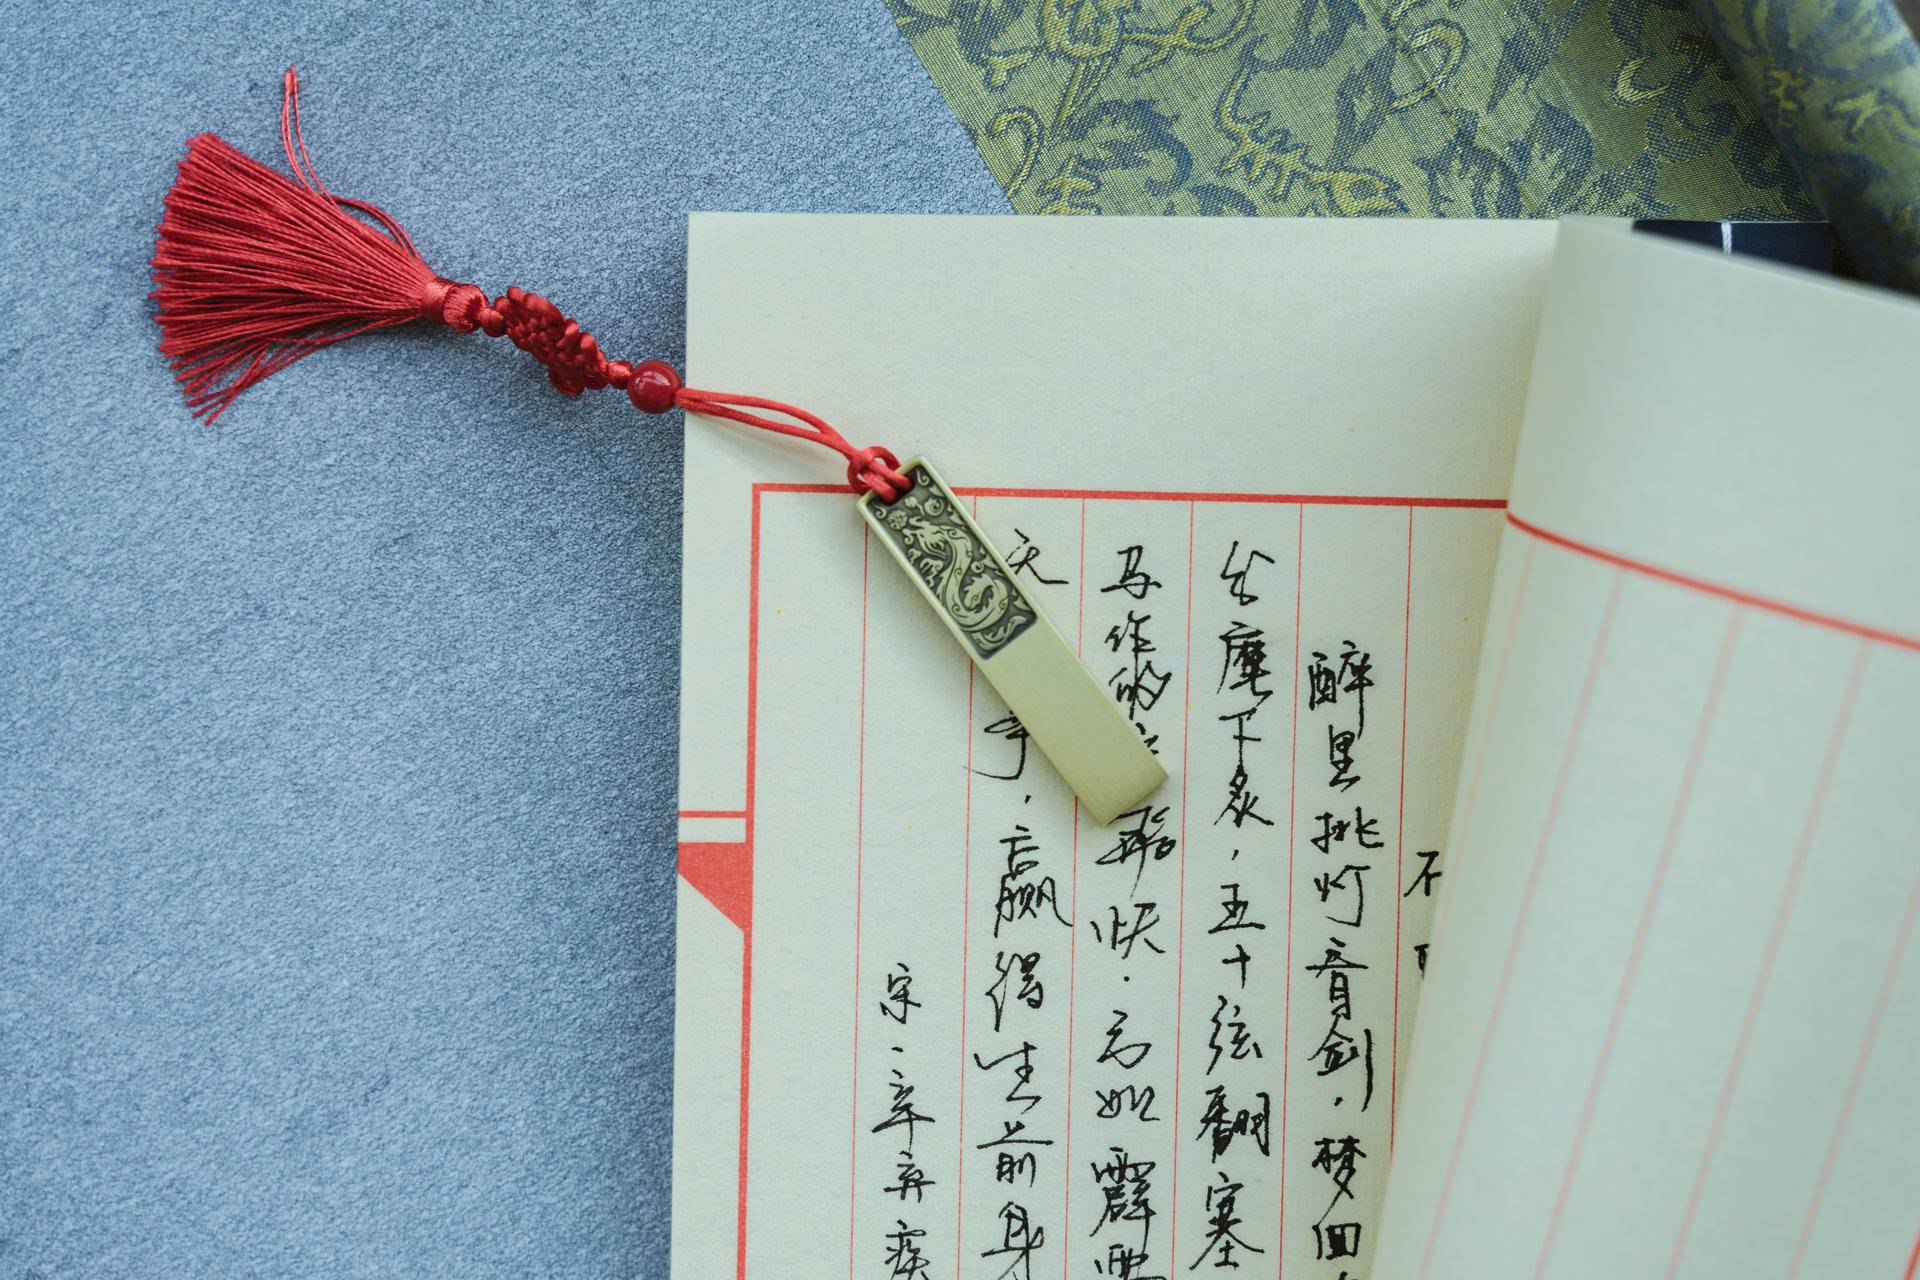 不
醉里挑灯看剑，梦回
分麾下炙，五十弦翻塞
马作的飞快，弓如霹雳
天事，赢得生前身
宋·辛弃疾